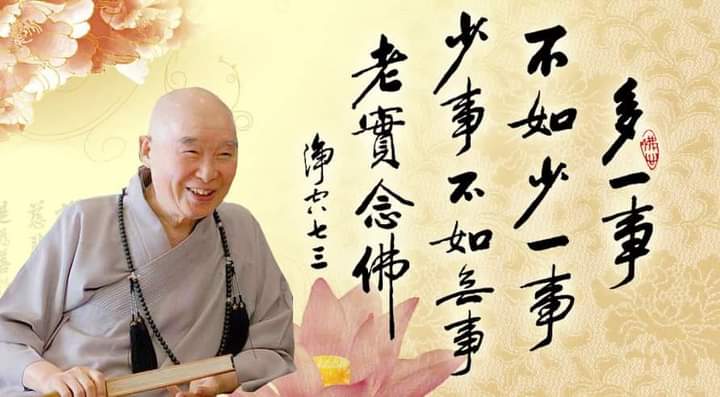 多一事
不如少一事
少事不如無事
老實念佛
淨空七三